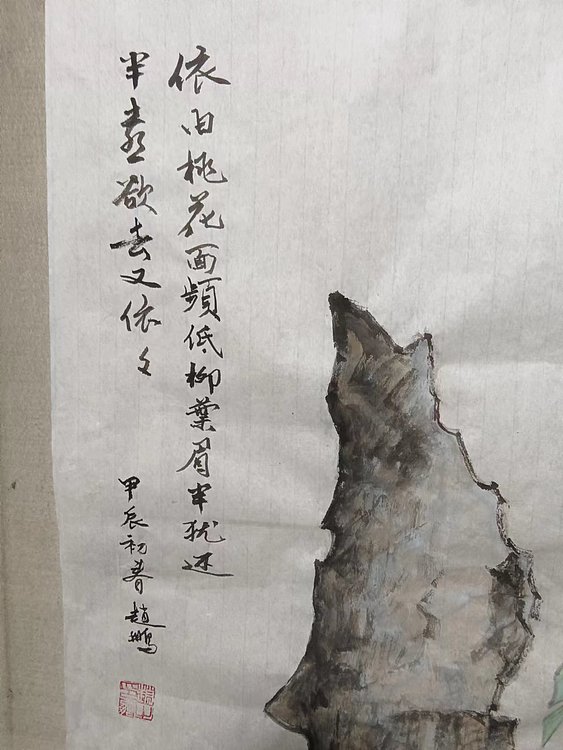 依旧桃花面頻低柳葉眉半还
半喜欲去又依々
甲辰初春趙鵬